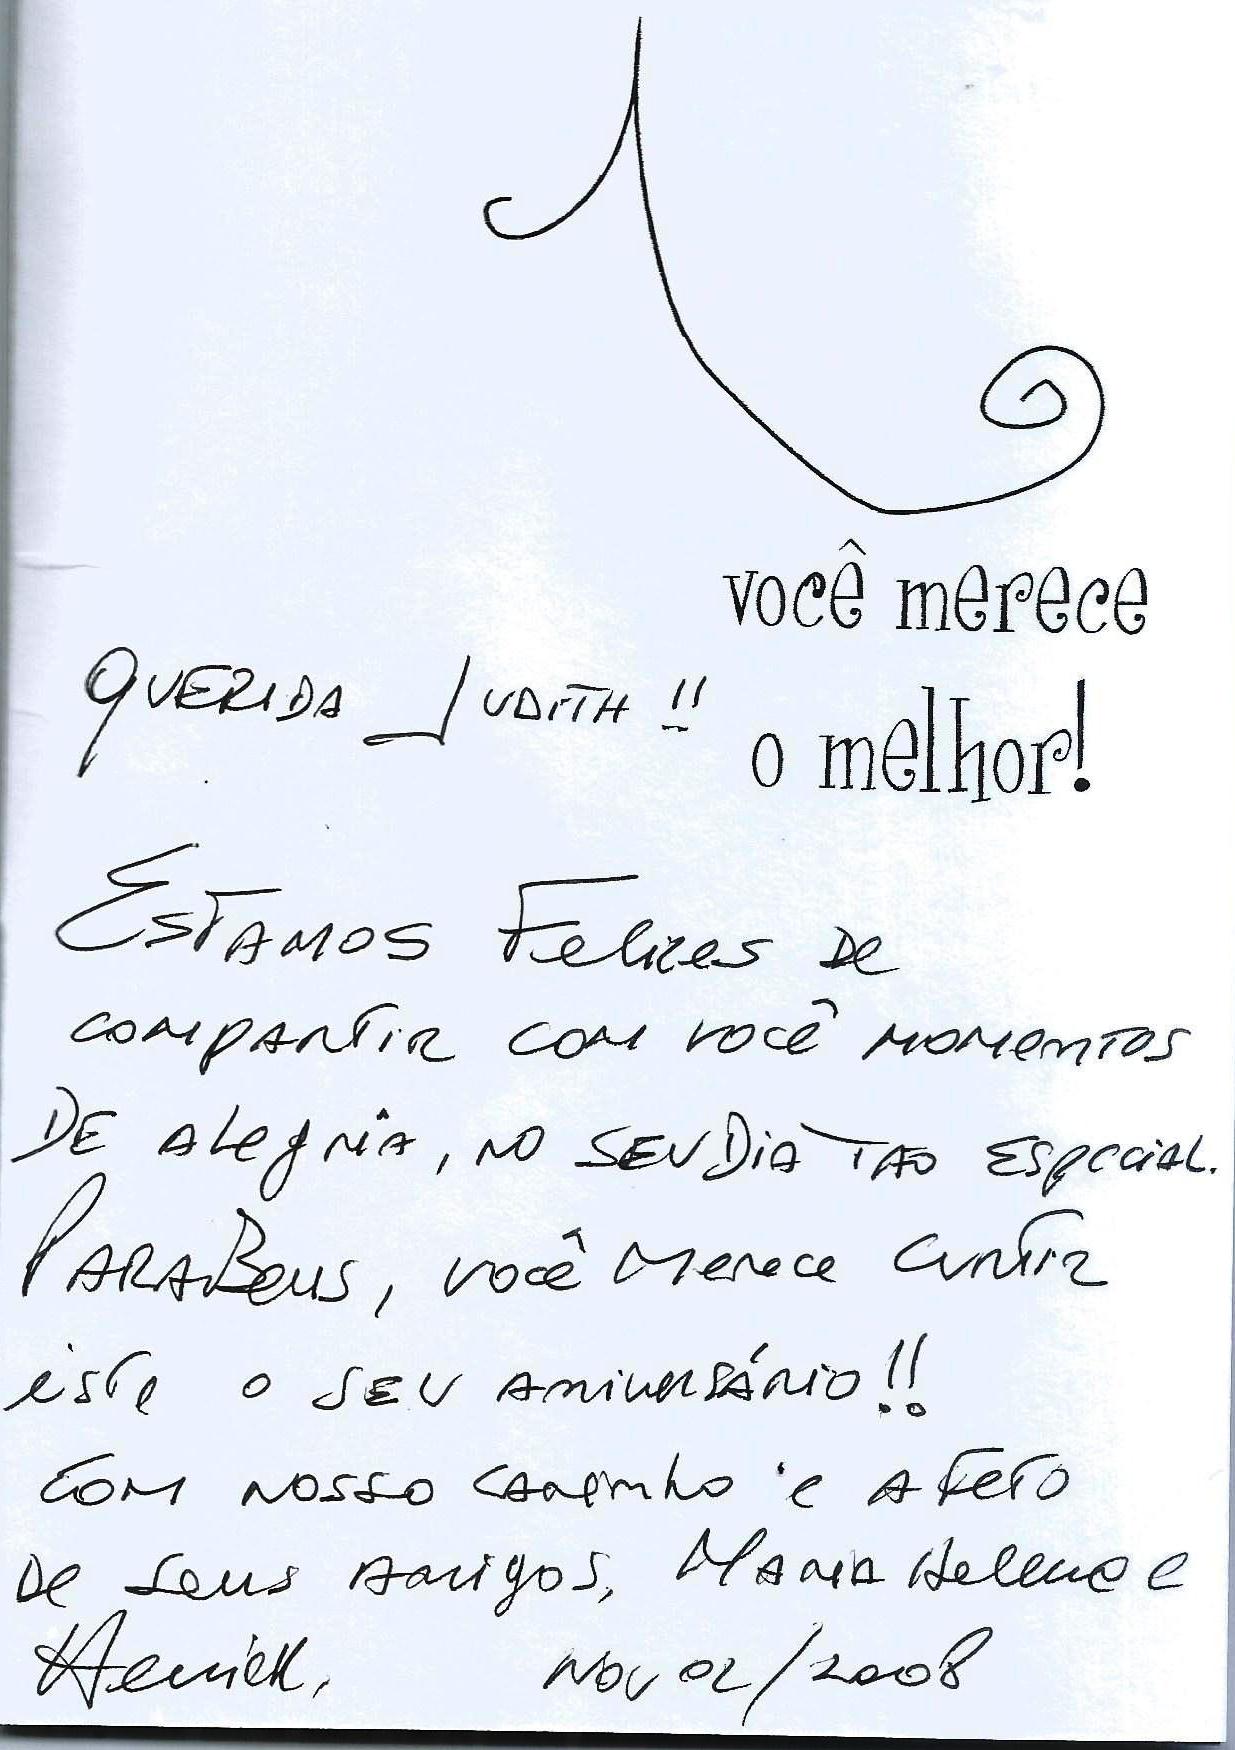 você merece
o melhor!
QUERIDA JUDITH!!
ESTAMOS Felizes DE
compartir com você momentos
DE Alegria, NO SEU DIA TAO ESpecial.
PARABENS, você Merece Curtir
este o SEU aniversário!!
com nosso carinho e AFETO
De Seus Amigos, MARIA Helena e
Henrick, NOV 02/2008